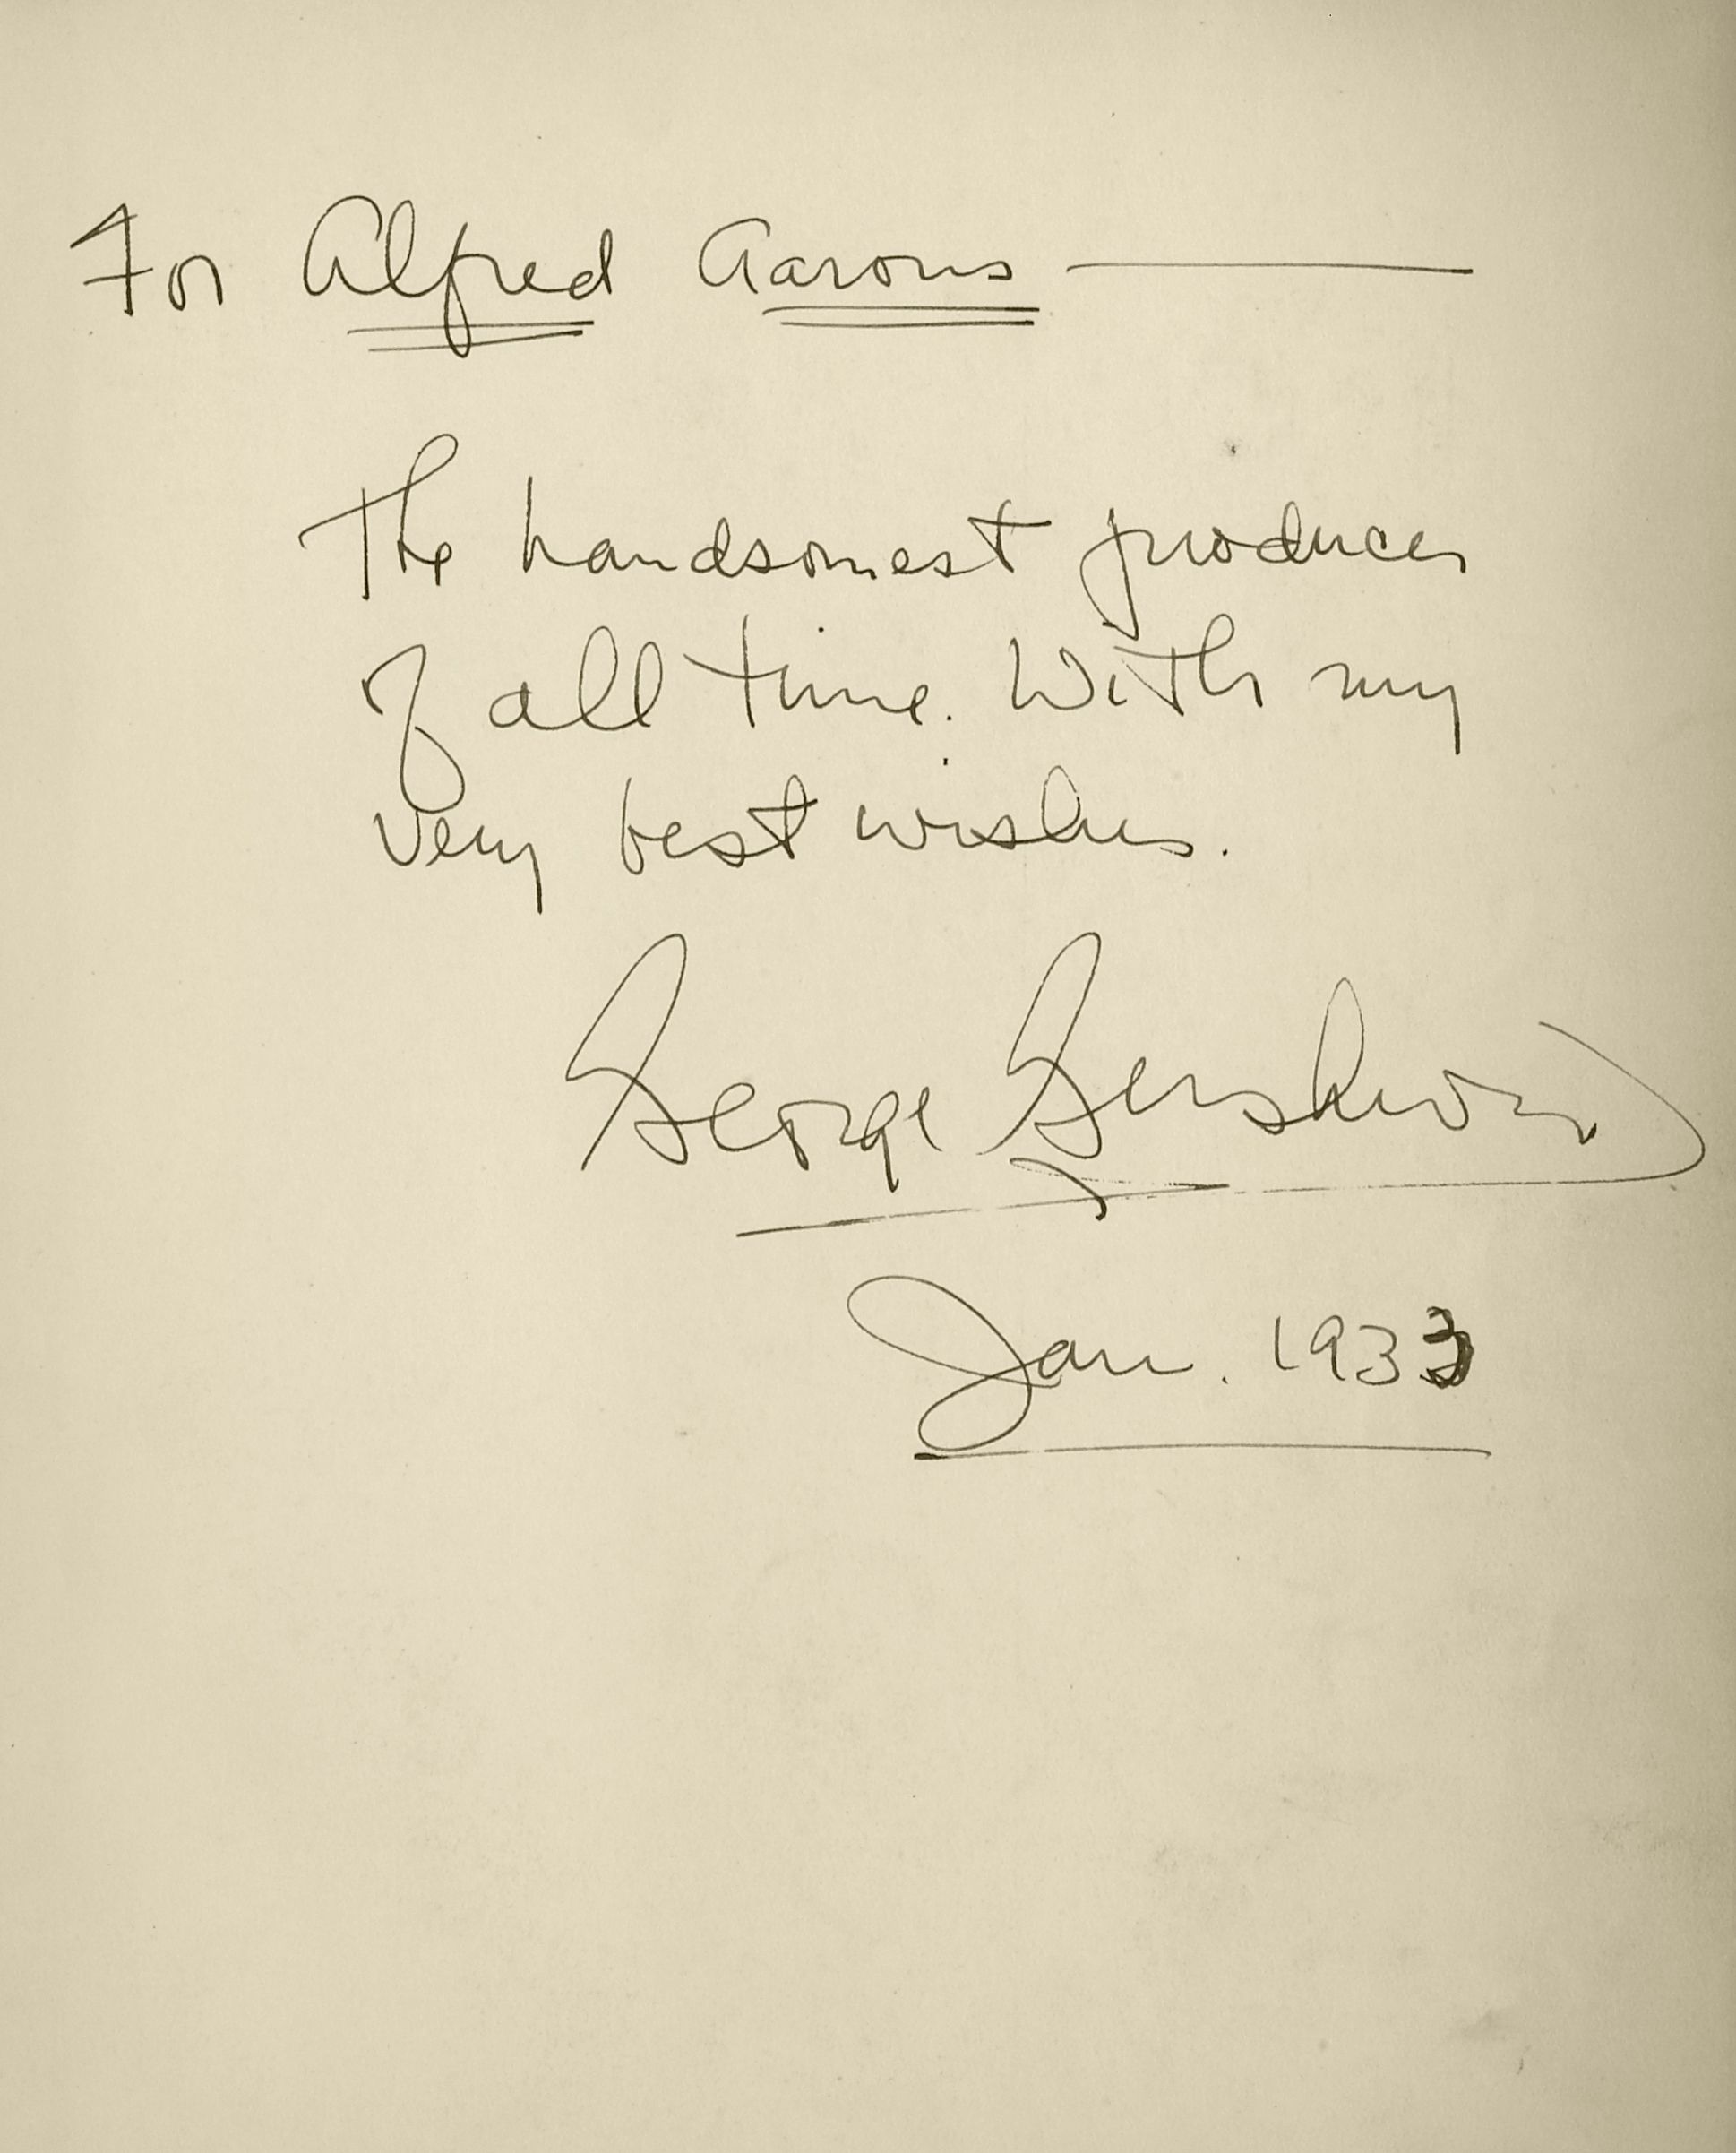 For Alfred Aarons —
The handsomest producer
of all time. With my
very best wishes.
George Gershwin
Jan. 1933